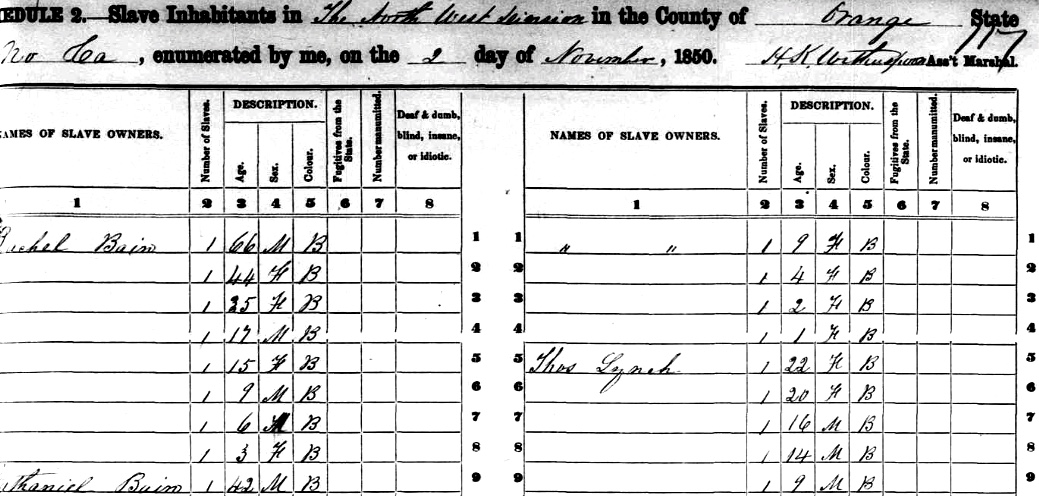 EDULE 2.—Slave Inhabitants in The North West Division in the County of Orange State
No Ca, enumerated by me, on the 2 day of November, 1850. H.K. Ass't Marshal.
AMES OF SLAVE OWNERS. Number of Slaves. DESCRIPTION. Age. Sex. Colour. Fugitives from the State. Number manumitted. Deaf & dumb, blind, insane, or idiotic. NAMES OF SLAVE OWNERS. Number of Slaves. DESCRIPTION. Age. Sex. Colour. Fugitives from the State. Number manumitted. Deaf & dumb, blind, insane, or idiotic.
1 2 3 4 5 6 7 8 1 2 3 4 5 6 7 8
Rachel Bain 1 66 M B 1 1 " " 1 9 F B 1
1 44 F B 2 2 1 4 F B 2
1 25 F B 3 3 1 2 F B 3
1 17 M B 4 4 1 1 F B 4
1 15 F B 5 5 Thos Lynch 1 22 F B 5
1 9 M B 6 6 1 20 F B 6
1 6 M B 7 7 1 16 M B 7
1 3 F B 8 8 1 14 M B 8
thaniel Bain 1 42 M B 9 9 1 9 M B 9